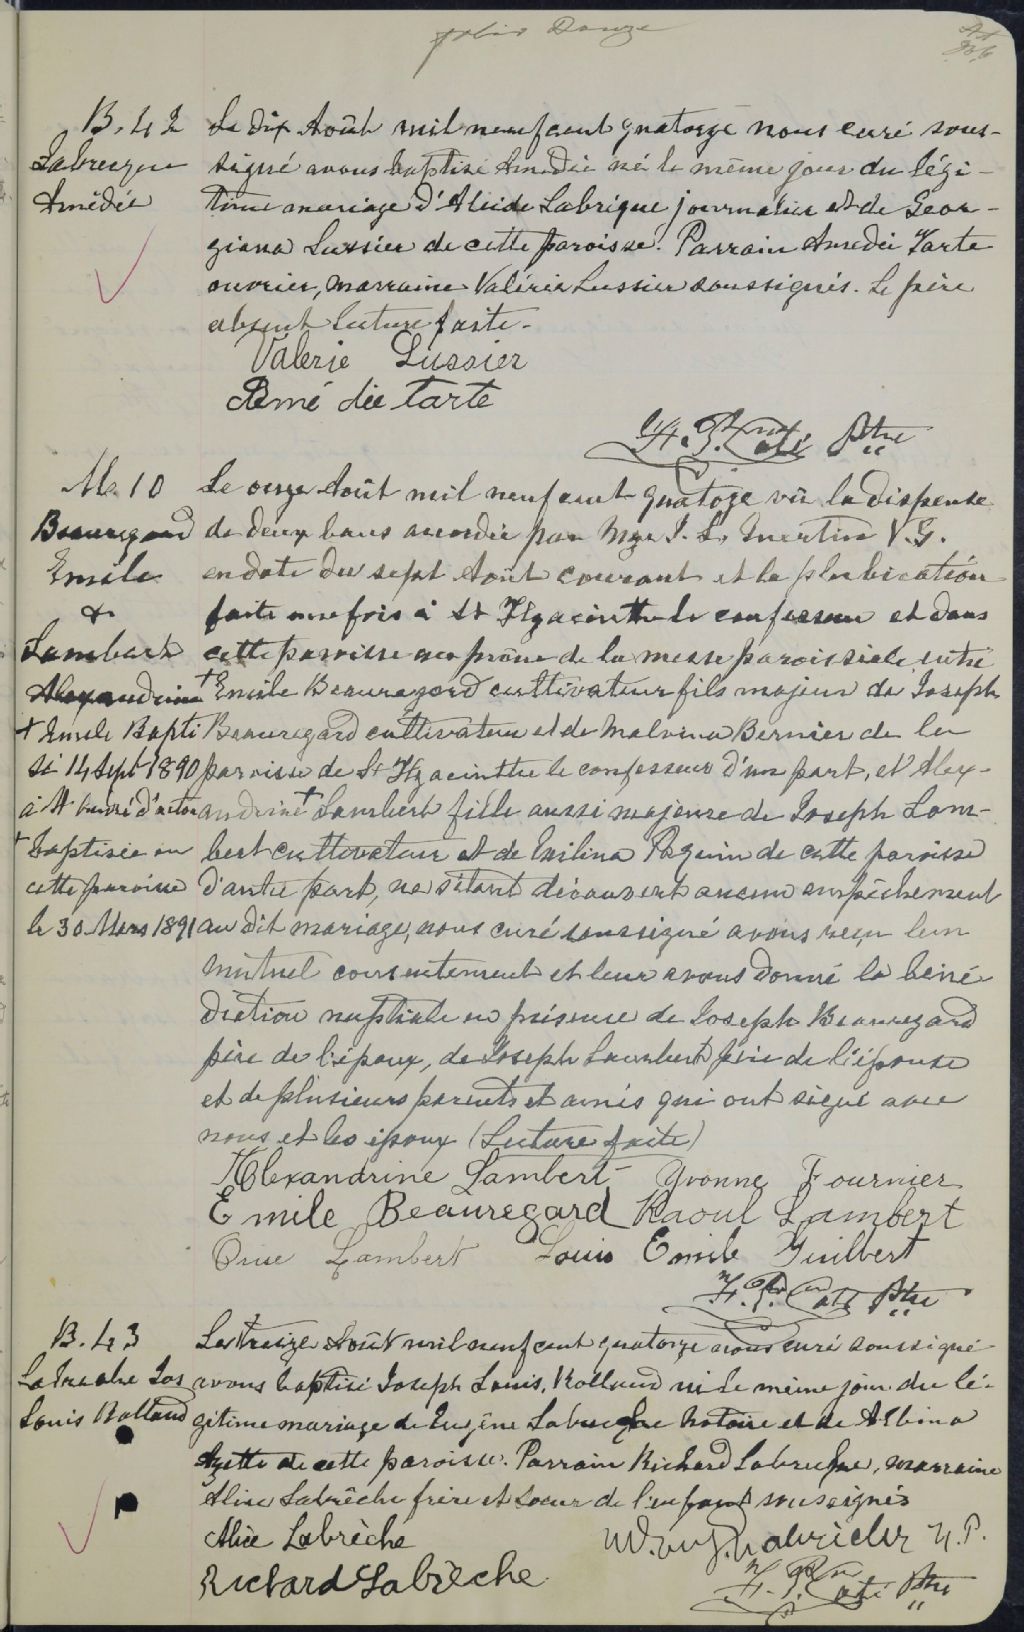 folio Douze
B. 42
Labrecque
Amédée
Le dix Août mil neuf cent quatorze nous curé sous-
signé avons baptisé Amédée né le même jour du légi-
time mariage d'Alcide Labrèque journalier et de Geor-
giana Lussier de cette paroisse. Parrain Amédée Tarte
ouvrier, marraine Valérie Lussier soussignés. Le père
absent lecture faite.
Valerie Lussier
Amé dée tarte
Ptre
M. 10
Beauregard
Emile
&
Lambert
Alexandrine
+ Emile Bapti
sé 14 Sept 1890
à St André d'acton
+ baptisée en
cette paroisse
le 30 Mars 1891
Le onze Août mil neuf cent quatoze vû la dispense
de deux bans accordée par Mgr J. L. Guertin V.G.
en date du sept Août courant et la plubication
faite une fois à St Hyacinthe le confesseur et dans
cette paroisse au prône de la messe paroissiale entre
+ Emile Beauregard cultivateur fils majeur de Joseph
Beauregard cultivateur et de Malvina Bernier de la
paroisse de St Hyacinthe le confesseur d'une part, et Alex-
andrine + Lambert fille aussi majeure de Joseph Lam-
bert cultivateur et de Exilina Paquin de cette paroisse
d'autre part, ne s'étant découvert aucun empêchement
au dit mariage, nous curé soussigné avons reçu leur
mutuel consentement et leur avons donné la béné
diction nuptiale en présence de Joseph Beauregard
père de l'époux, de Joseph Lambert père de l'épouse
et de plusieurs parents et amis qui ont signé avec
nous et les époux (Lecture faite)
Alexandrine Lambert Yvonne Fournier
Emile Beauregard Raoul Lambert
Lambert Louis Emile Guilbert
Ptre
B. 43
Labreche Jos
Louis Rolland
Le treize Août mil neuf cent quatorze nous curé soussigné
avons baptisé Joseph Louis, Rolland né le même jour du lé-
gitime mariage de Eugène Labreche Notaire et de Albina
de cette paroisse. Parrain Richard Labreche, marraine
Alice Labrêche frère et soeur de l'enfant soussignés
Alice Labrèche
N.P.
Richard Labrèche
Ptre